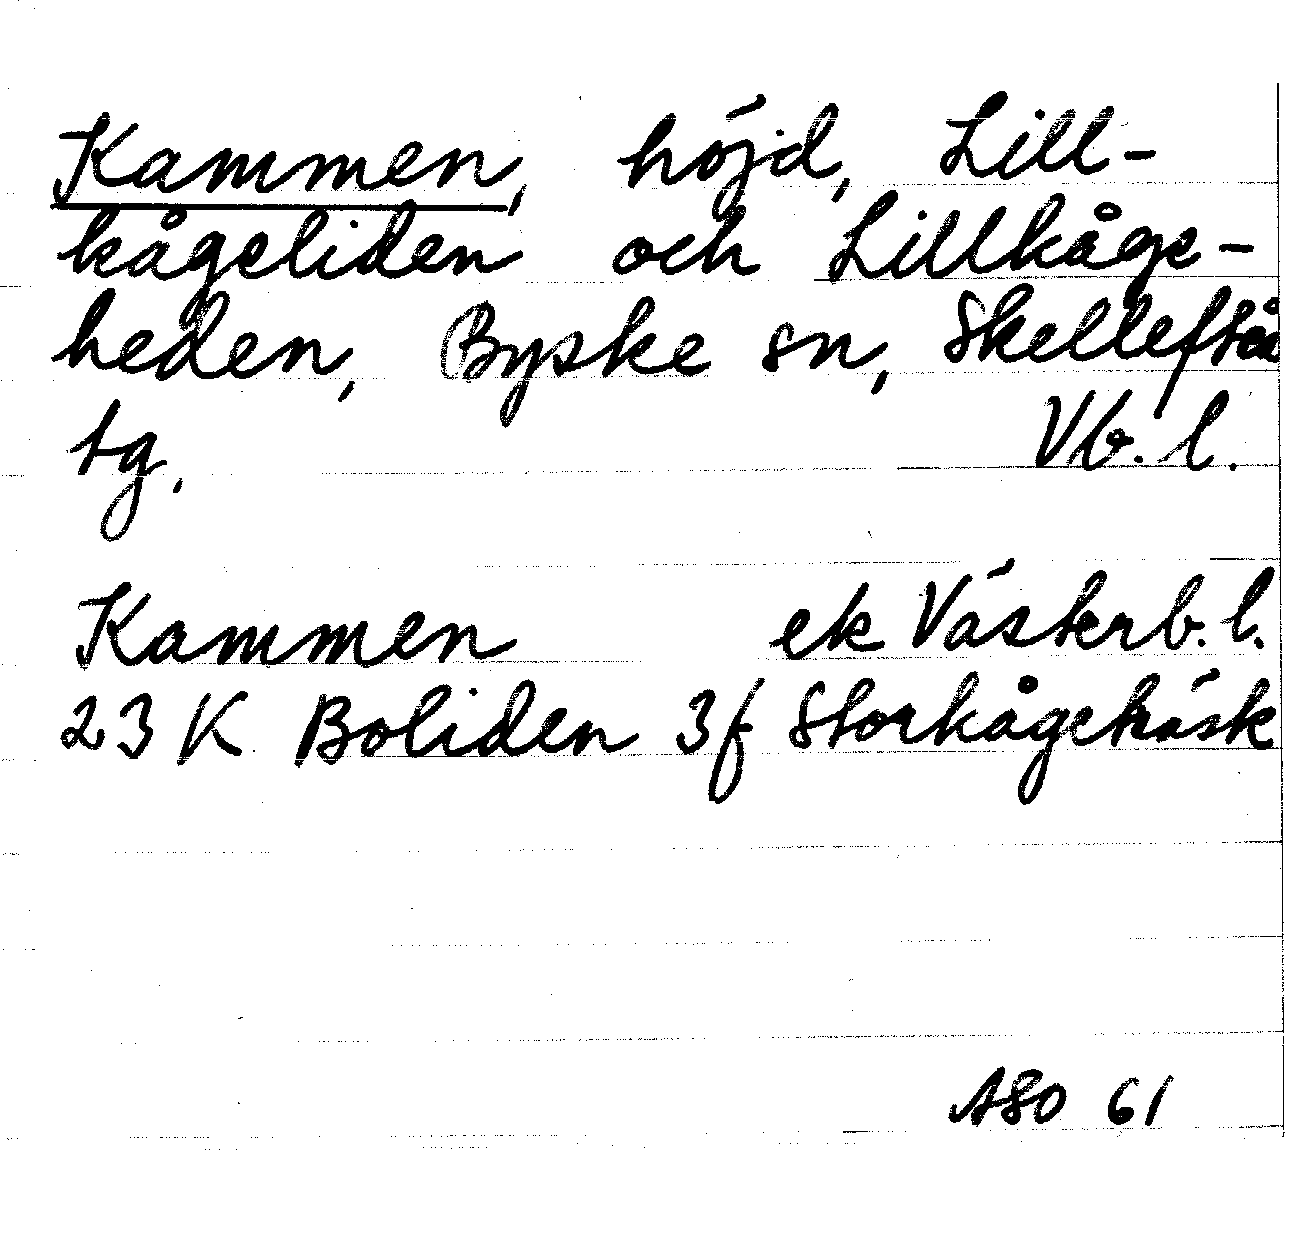 Kammen, höjd, Lill-
kågeliden och Lillkåge-
heden, Byske sn, Skellefteå
tg, Vb. l.
Kammen ek Västerb. l.
23 K Boliden 3f Storkågeträsk
ASO 61